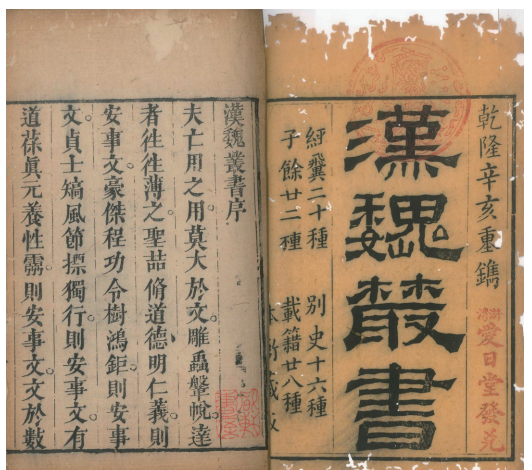 乾隆辛亥重鐫
愛日堂發兌
漢魏叢書
經翼二十種　別史十六種
子餘廿二種　載籍廿八種
本衙藏板
漢魏叢書序
夫亡用之用莫大於文雕蟲鞶帨達
者往往薄之聖喆脩道德明仁義則
安事文豪傑程功令樹鴻鉅則安事
文貞士矯風節摽獨行則安事文有
道葆眞元養性霛則安事文文於數